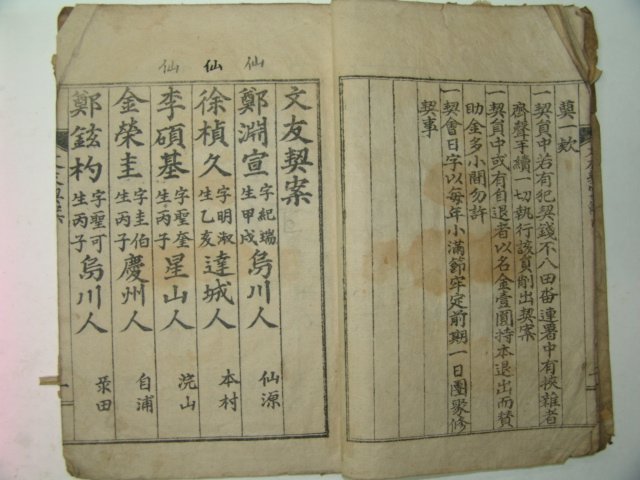 奠一欸
一契員中若有犯契錢不入田畓連署中有挾雜者
齊聲手續一切執行該員削出契案
一契員中或有自退者以名金壹圓持本退出而贊
助金多小間勿許
一契會日字以每年小滿節牢定前期一日團聚修
契事
文友契案
仙
鄭淵宣 字紀瑞 生甲戌 烏川人 仙源
仙
徐楨久 字明淑 生乙亥 達城人 本村
仙
李碩基 字聖奎 生丙子 星山人 浣山
金榮圭 字圭伯 生丙子 慶州人 自浦
鄭鉉杓 字聖可 生丙子 烏川人 田